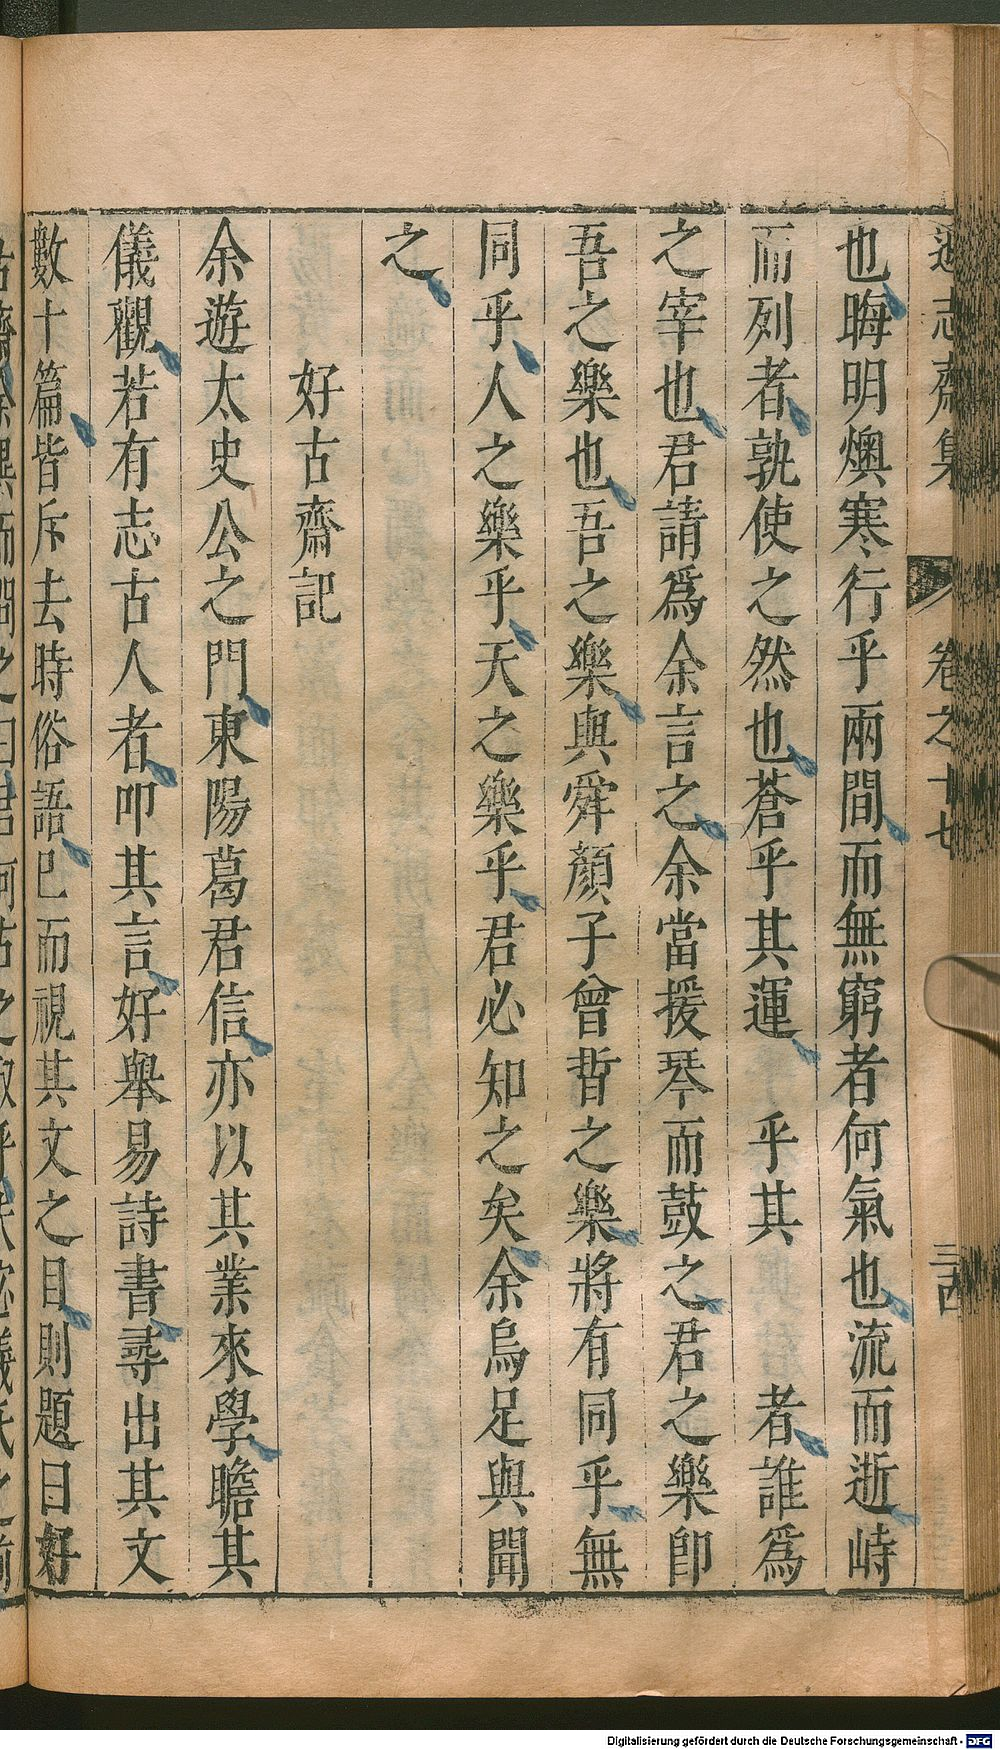 遜志齋集 卷之十七 三四
也晦明燠寒行乎兩間而無窮者何氣也流而逝峙
而列者孰使之然也蒼乎其運 乎其 者誰爲
之宰也君請爲余言之余當援琴而鼓之君之樂卽
吾之樂也吾之樂與舜顏子曾晳之樂將有同乎無
同乎人之樂乎天之樂乎君必知之矣余烏足與聞
之
好古齋記
余遊太史公之門東陽葛君信亦以其業來學瞻其
儀觀若有志古人者叩其言好舉易詩書尋出其文
數十篇皆斥去時俗語已而視其文之目則題曰好
Digitalisierung gefördert durch die Deutsche Forschungsgemeinschaft - DFG